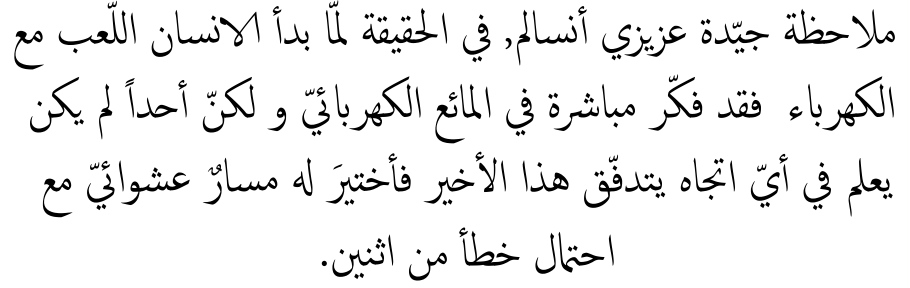 ملاحظة جيّدة عزيزي أنسالم, في الحقيقة لمّا بدأ الانسان اللّعب مع
الكهرباء فقد فكّر مباشرة في المائع الكهربائيّ و لكنّ أحداً لم يكن
يعلم في أيّ اتجاه يتدفّق هذا الأخير فأختيرَ له مسارٌ عشوائيّ مع
احتمال خطأ من اثنين.